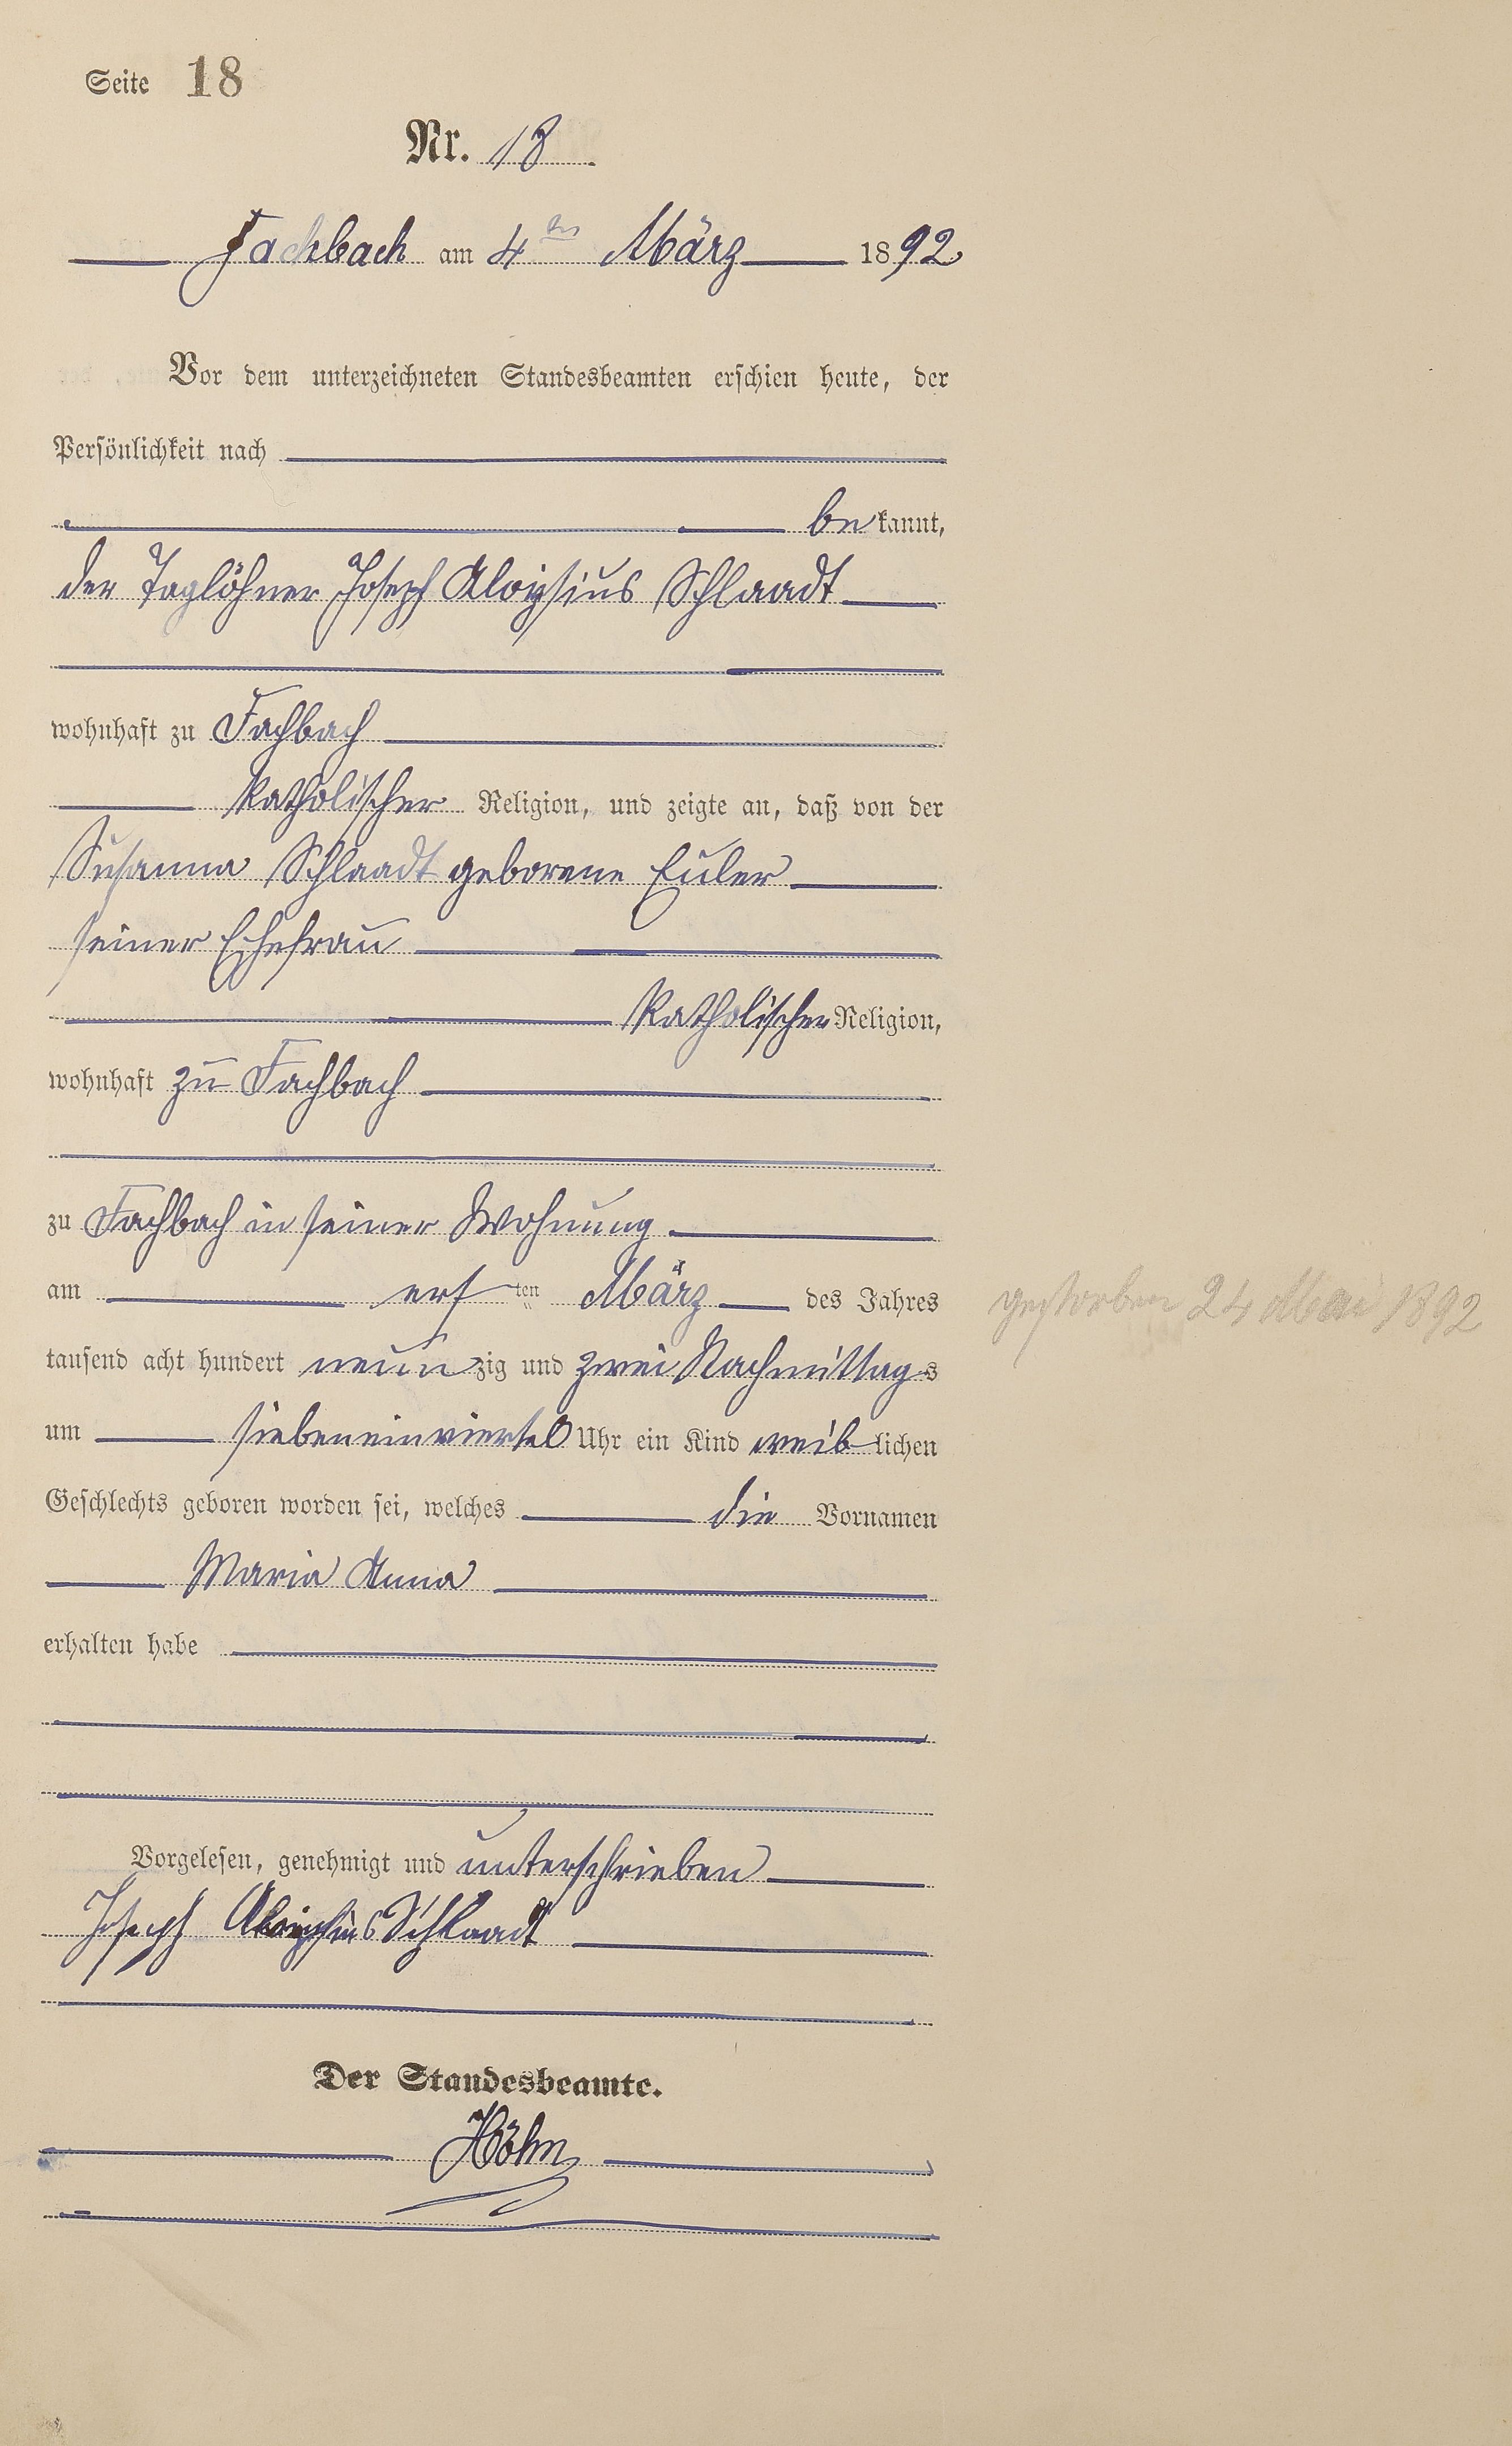 Seite 18
Nr. 18
Fachbach am 4ten März 1892
Vor dem unterzeichneten Standesbeamten erschien heute, der
Persönlichkeit nach
bekannt,
der Taglöhner Joseph Aloysius Schlaadt
wohnhaft zu Fachbach
katholischer Religion, und zeigte an, daß von der
Susanna Schlaadt geborene Euler
seiner Ehefrau
katholischer Religion,
wohnhaft zu Fachbach
zu Fachbach in seiner Wohnung
am ersten März des Jahres
gestorben 24 Mai 1892
tausend acht hundert neunzig und zwei Nachmittags
um siebeneinviertel Uhr ein Kind weiblichen
Geschlechts geboren worden sei, welches die Vornamen
Maria Anna
erhalten habe
Vorgelesen, genehmigt und unterschrieben
Joseph Aloysius Schlaadt
Der Standesbeamte.
Höhn